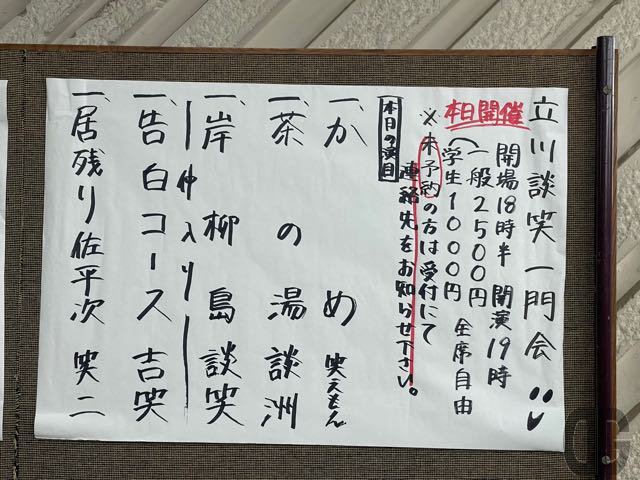 立川談笑一門会
本日開催
開場18時半 開演19時
一般2500円
学生1000円 全席自由
※未予約の方は受付にて
連絡先をお知らせ下さい。
本日の演目
一、かめ 笑えもん
一、茶の湯 談洲
一、岸柳島 談笑
｜仲入り｜
一、告白コース 吉笑
一、居残り佐平次 笑二